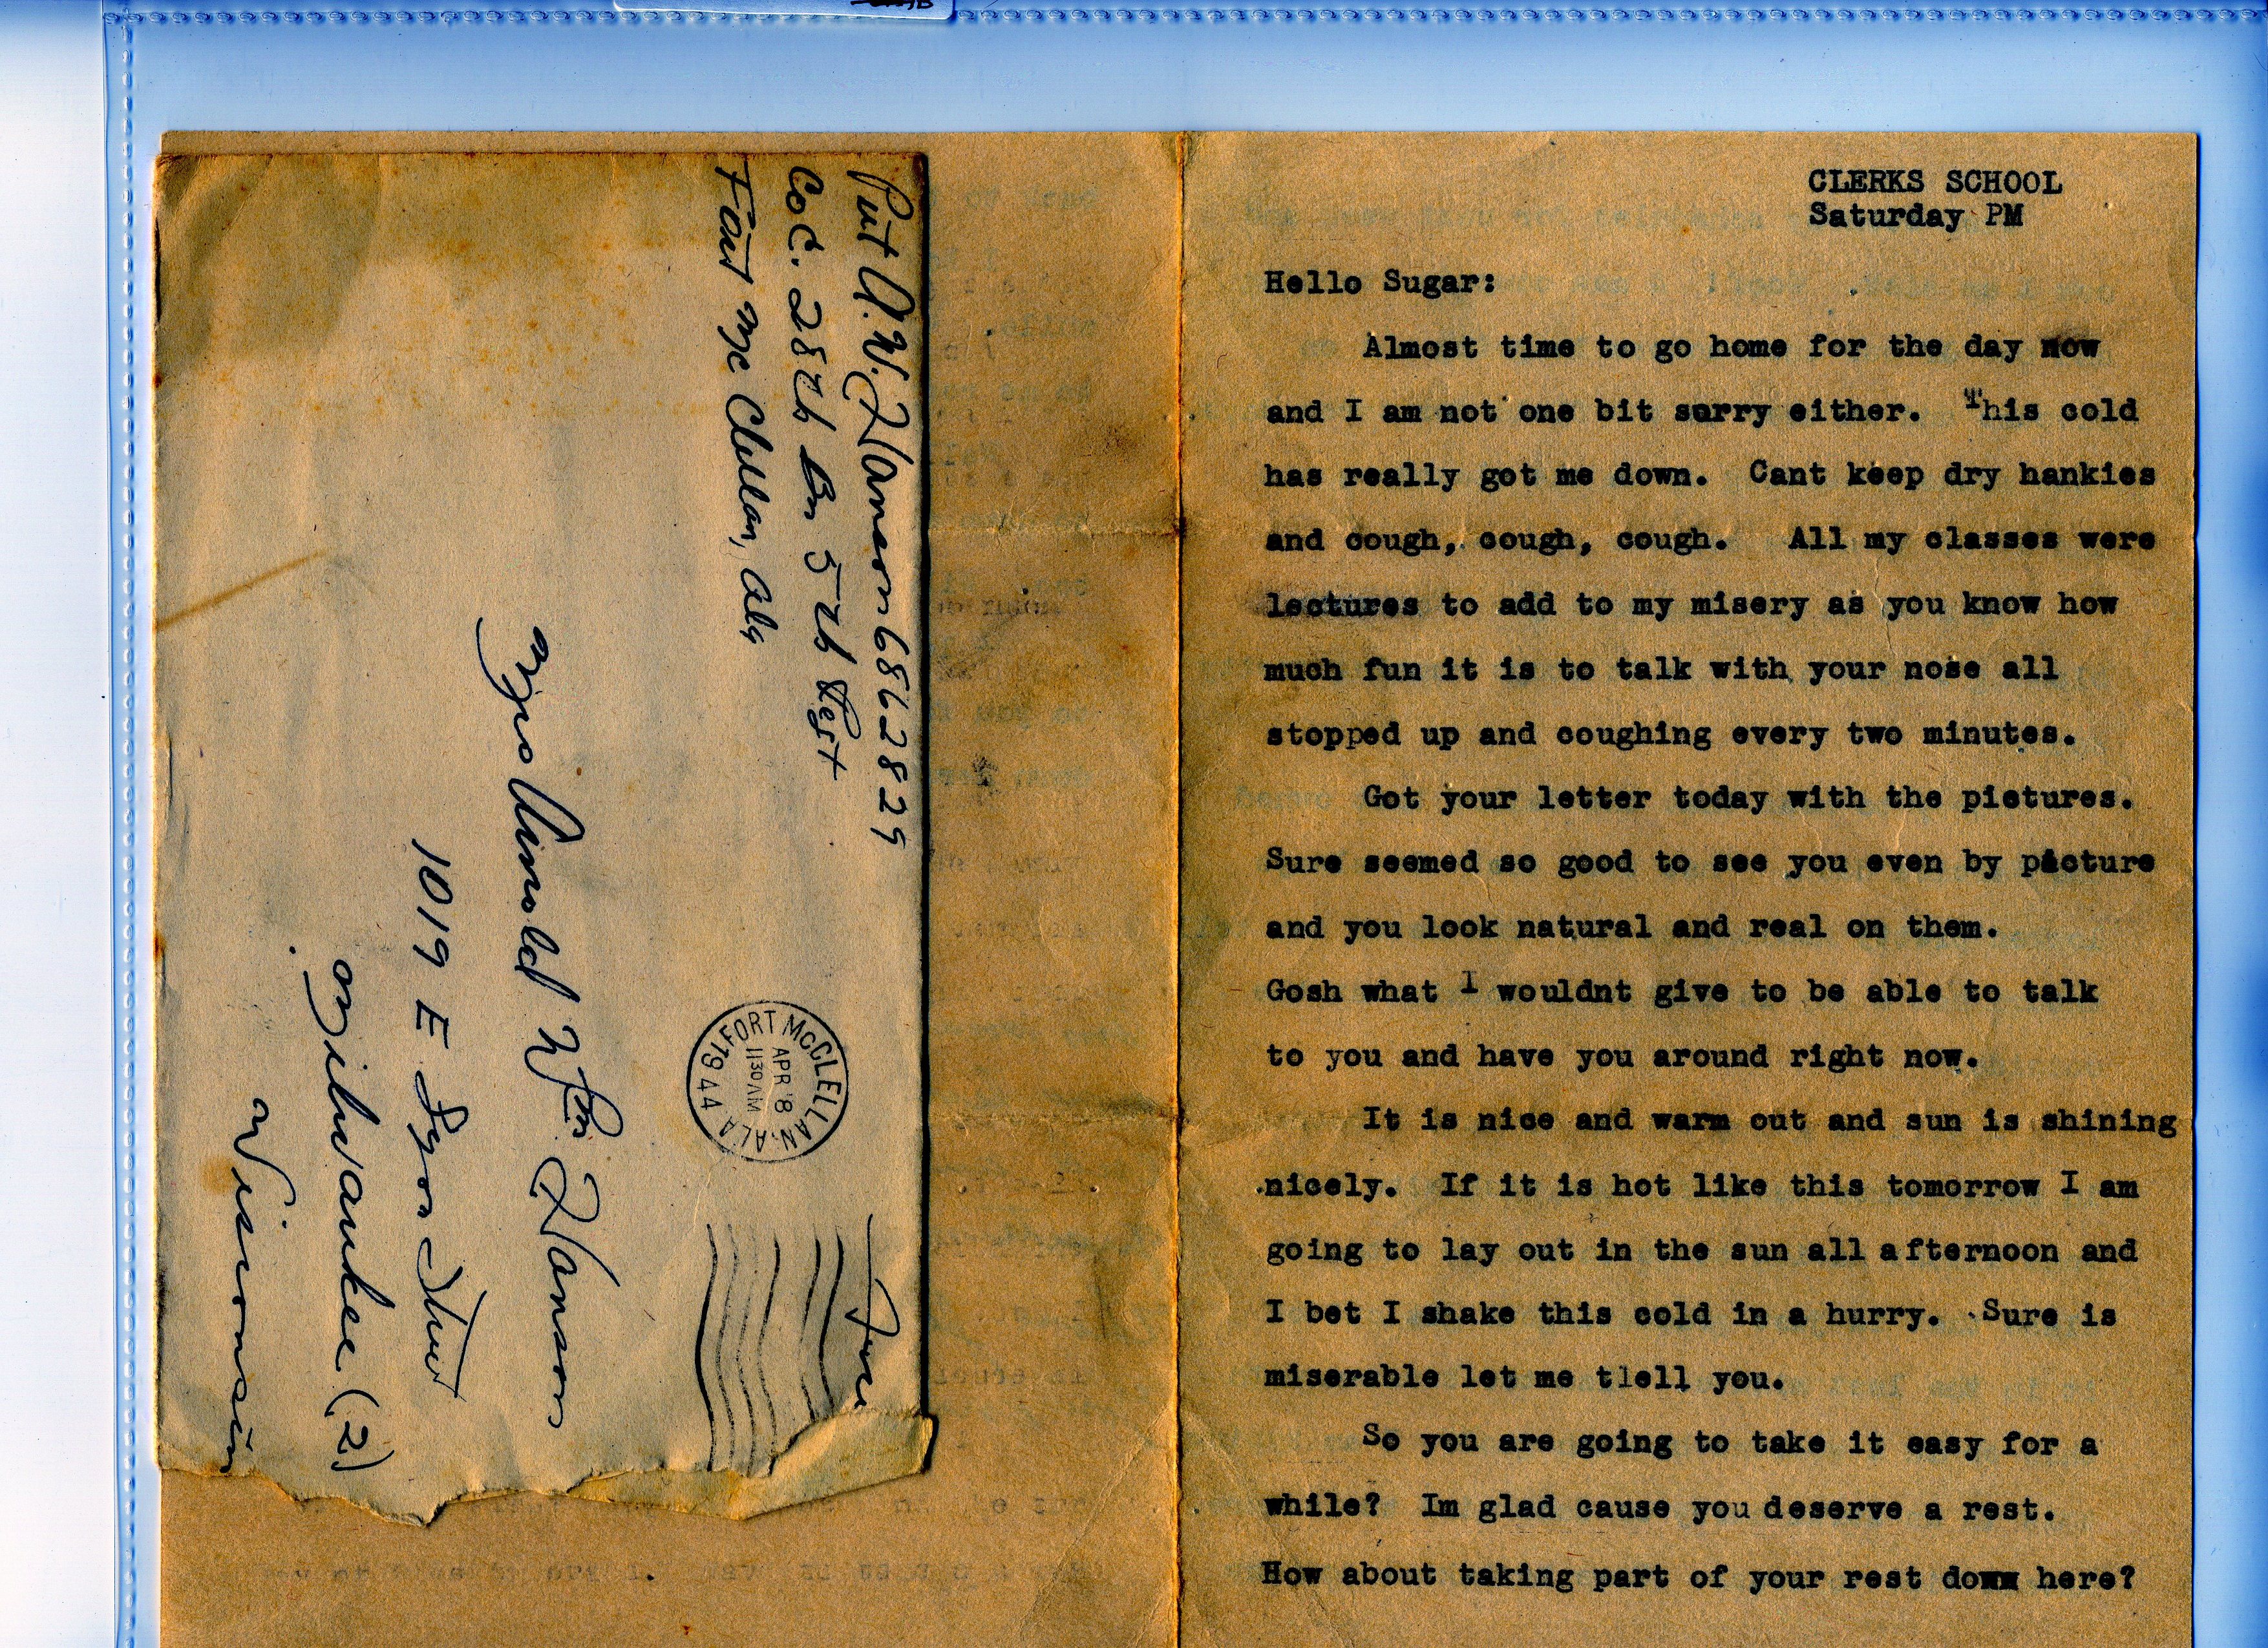 Pvt A.W. Hanson 6862829
Co C. 28th Bn 5th Regt
Fort Mc Clellan, Ala
Free
FORT McCLELLAN, ALA
APR 8
1130 AM
1944
Mrs Arnold Wm Hanson
1019 E Lyon Street
Milwaukee (2)
Wisconsin
CLERKS SCHOOL
Saturday PM
Hello Sugar:
Almost time to go home for the day now
and I am not one bit sorry either. This cold
has really got me down. Cant keep dry hankies
and cough, cough, cough. All my classes were
lectures to add to my misery as you know how
much fun it is to talk with your nose all
stopped up and coughing every two minutes.
Got your letter today with the pictures.
Sure seemed so good to see you even by picture
and you look natural and real on them.
Gosh what I wouldnt give to be able to talk
to you and have you around right now.
It is nice and warm out and sun is shining
nicely. If it is hot like this tomorrow I am
going to lay out in the sun all afternoon and
I bet I shake this cold in a hurry. Sure is
miserable let me tlell you.
So you are going to take it easy for a
while? Im glad cause you deserve a rest.
How about taking part of your rest down here?